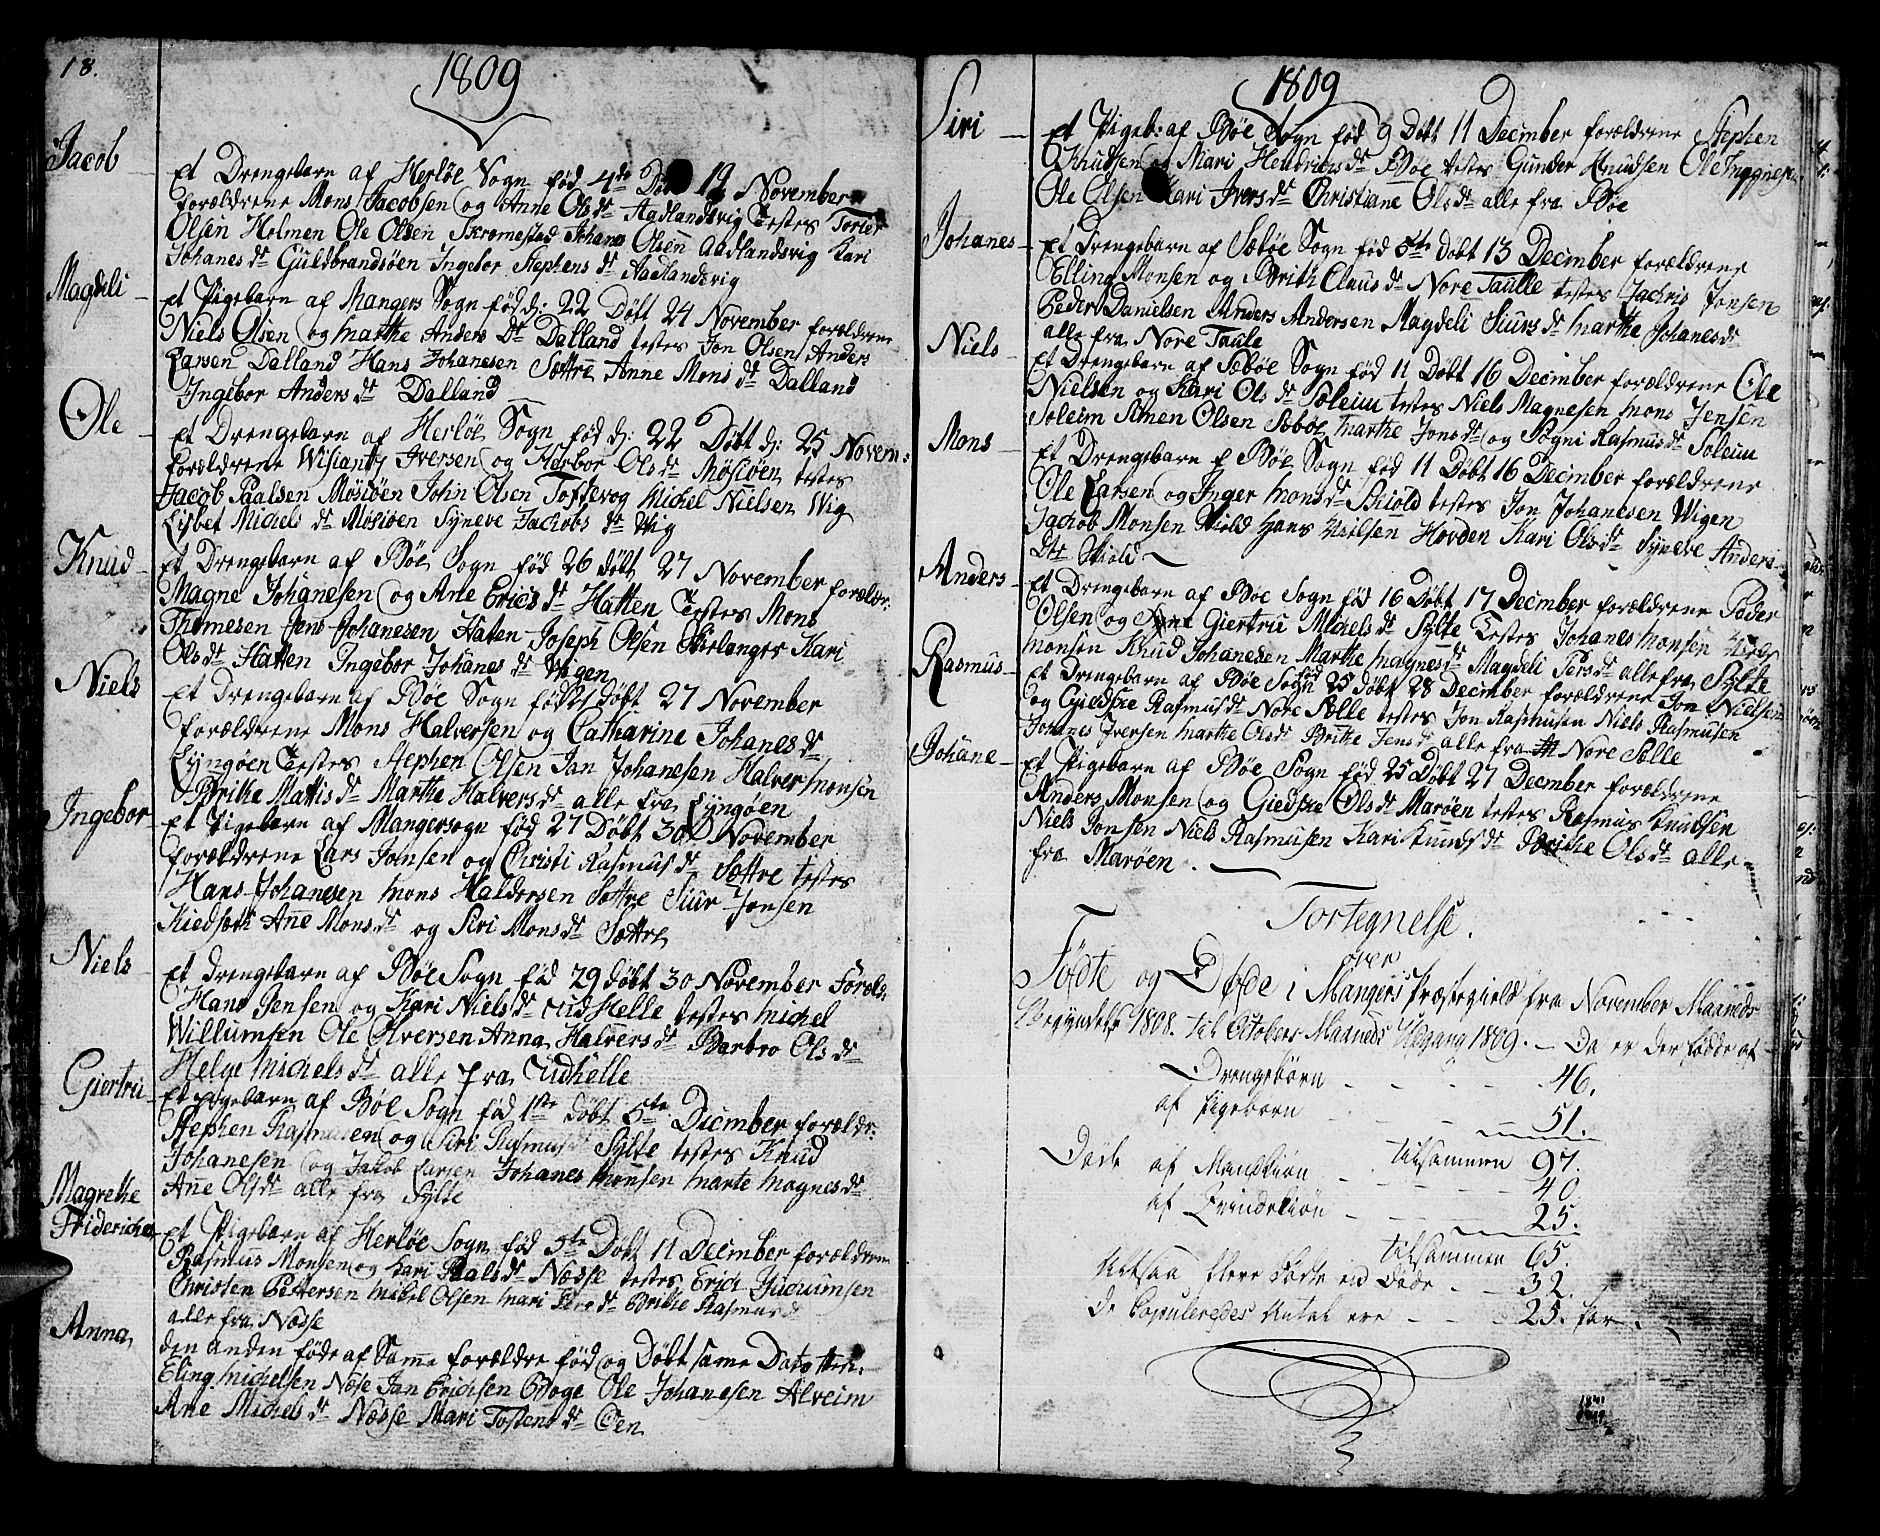 18.
1809
Jacob
Et Drengebarn af Herlöe Sogn fød 4de Døbt 19 November
forældrene Mons Jacobsen og Anne Olsdr Aadlandsvig Testes Torier
Olsen Helmen Ole Olsen Skromestad Johans Olsen Aadlandsvig Kari
Johanes dr Guldbrandsöen Ingebor Stephens dr Aadlandsvig
Magdeli
Et Pigebarn af Mangers Sogn fød d: 22 Døbt 24 November forældrene
Niels Olsen og Marthe Anders Dr Dalland testes Jon Olsen Anders
Larsen Dalland Hans Johanesen Sættre Anne Mons dr Dalland
Ingebor Anders dr Dalland
Ole
Et Drengebarn af Herlöe Sogn fød d: 22 Döbt d: 25 Novem:
forældrene Wisianty Iversen og Herbor Ols dr Mösiöen testes
Jacob Paalsen Mösiöen John Olsen Toftevog Michel Nielsen Wig
Lisbet Michels dr Mösiöen Syneve Jachobs dr Wig
Knud
Et Drengebarn af Böe Sogn fød 26 døbt 27 November foræld:
Magne Johanesen og Ane Erics dr Hatten Testes Mons
Thomesen Jens Johanesen Haten Joseph Olsen Kari
Ols dr Hatten Ingebor Johanes dr Wigen
Niels
Et Drengebarn af Böe Sogn fød døbt 27 November
forældrene Mons Halversen og Catharine Johanes dr
Lyngöen Testes Stephen Olsen Jan Johanesen Halver Monsen
Brithe Mattis dr Marthe Halvers dr alle fra Lyngöen
Ingebor
Et Pigebarn af Mangersogn fød 27 Døbt 30 November
forældrene Lars Jonsen og Christi Rasmus dr Sættre testes
Hans Johanesen Mons Haldorsen Sættre Siur Jonsen
Kiedsæth Ane Mons dr og Siri Mons dr Sættre
Niels
Et Drengebarn af Böe Sogn fød 29 døbt 30 November Foræld:
Hans Jensen og Kari Niels dr Udhelle testes Michel
Willumsen Ole Olversen Anna Halvers dr Barbro Ols dr
Helge Michels dr alle fra Udhelle
Giertru
Et pigebarn af Böe Sogn fød 1ste døbt 5te Dicmber foræld:
Stephen Rasmusen og Siri Rasmus dr Sylte testes Knud
Johanesen og Jakob Larsen Johanes Monsen Marte Magnes dr
Ane Olsdr alle fra Sylte
Magrethe
Fridericha
Et Pigebarn af Herlöe Sogn fød 5te Døbt 11 December forældrene
Rasmus Monsen og Kari Paals dr Næsse testes Erich Gudumsen
Christen Pettersen Mikel Olsen Mari Pers dr Brithe Rasmus d
alle fra Næsse
Anna
den anden föde af Samme forældre fød og Døbt same Dato testes
Eling Michelsen Næse Jan Erichsen Boge Ole Johanesen Alveim
Ane Michels dr Næsse Mari Tostens dr Oen
1809
Siri
Et Pigeb: af Böe Sogn fød 9 Døbt 11 December forældrene Stephen
Knudsen og Mari Hendrics dr Böe testes Gunder Knudsen Ole
Ole Olsen Kari Ivers dr Christiane Ols dr alle fra Böe
Johanes
Et Drengebarn af Sæböe Sogn fød 5te Døbt 13 December forældrene
Elling Monsen og Brith Claus dr Nore Taulle testes Zachris Jonsen
Peder Danielsen Anders Andersen Magdeli Siurs dr Marthe Johanesdr
alle fra Nore Taule
Niels
Et Drengebarn af Sæböe Sogn fød 11 Døbt 16 December forældrene Ole
Nielsen og Kari Ols dr Soleim testes Niels Magnesen Mons Jensen
Soleim Simen Olsen Sæböe Marthe Jons dr og Sogni Rasmus dr Soleim
Mons
Et Drengebarn f Böe Sogn fød 11 Døbt 16 December forældrene
Ole Larsen og Inger Mons dr Skiold testes Jon Johanesen Wigen
Jachob Monsen Skiold Hans Neelsen Hovden Kari Ols dr Syneve Anders
Dtr Skiold
Anders
Et Drengebarn af Böe Sogn fød 16 Døbt 17 December forældrene Peder
Olsen og Giertru Michels dr Sylte Testes Johanes Monsen
Monsen Knud Johanesen Marthe Magnes dr Magdeli Pers dr alle fra Sylte
Rasmus
Et Drengebarn af Böe Sogn fød 25 døbt 28 December forældrene Jon Nielsen
og Giedske Rasmus dr Nore Sælle testes Jon Rasmusen Niels Rasmusen
Johanes Iversen Marthe Ols dr Brithe Jens dr alle fra Nore Sælle
Johane
Et Pigebarn af Böe Sogn fød 25 Døbt 27 December forældrene
Anders Monsen og Giedske Ols dr Maröen testes Rasmus Knudsen
Niels Jonsen Niels Rasmusen Kari Knuds dr Brithe Ols dr alle
fra Maröen.
Fortegnelse.
over
Födte og Døde i Mangers Præstegield fra November Maaneds
Begyndelse 1808. til Octobers Maaneds Udgang 1809. - Da er der fødde af
Drengebörn 46.
af Pigebørn 51.
tilsammen 97.
Døde af Mandkiön 40.
af Qvindekiön 25.
tilsammen 65.
Altsaa flere födte end Døde 32.
De Copuleredes Antal ere 25. Par.